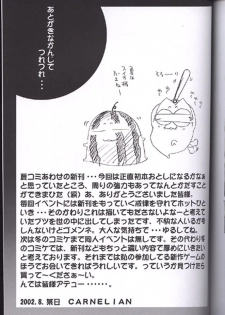 あとがきなかんして
つれづれ…
夏は
スイカ様
だよね〜
夏コミあわせの新刊・・・今回は正直初本おとしになるかなぁ
と思っていたところ、周りの強力もあってなんとかだすこと
ができまひた（涙）あ、ありがとうございました皆様。
毎回イベントには新刊をもっていく戒律を守れてホットひと
いき・・そのかわりこれは描いてもださないよなーと考えて
いたブツを世の中に出してしまったです。不快な人いるかも
しんないけどゴメンネ。大人な気持ちで・・ゆるしてね。
次は冬のコミケまで同人イベントは無しです。その代わり冬
のコミケでは、新刊などもちっと濃い内容で出したいと考え
ております。それまでは私の参加してる新作ゲームの
ほうでお会いできればうれしいです・・っていうか見つけたら
買ってくださぁーい。
んでは皆様アデュー・・・。
2002.8.某日 CARNELIAN